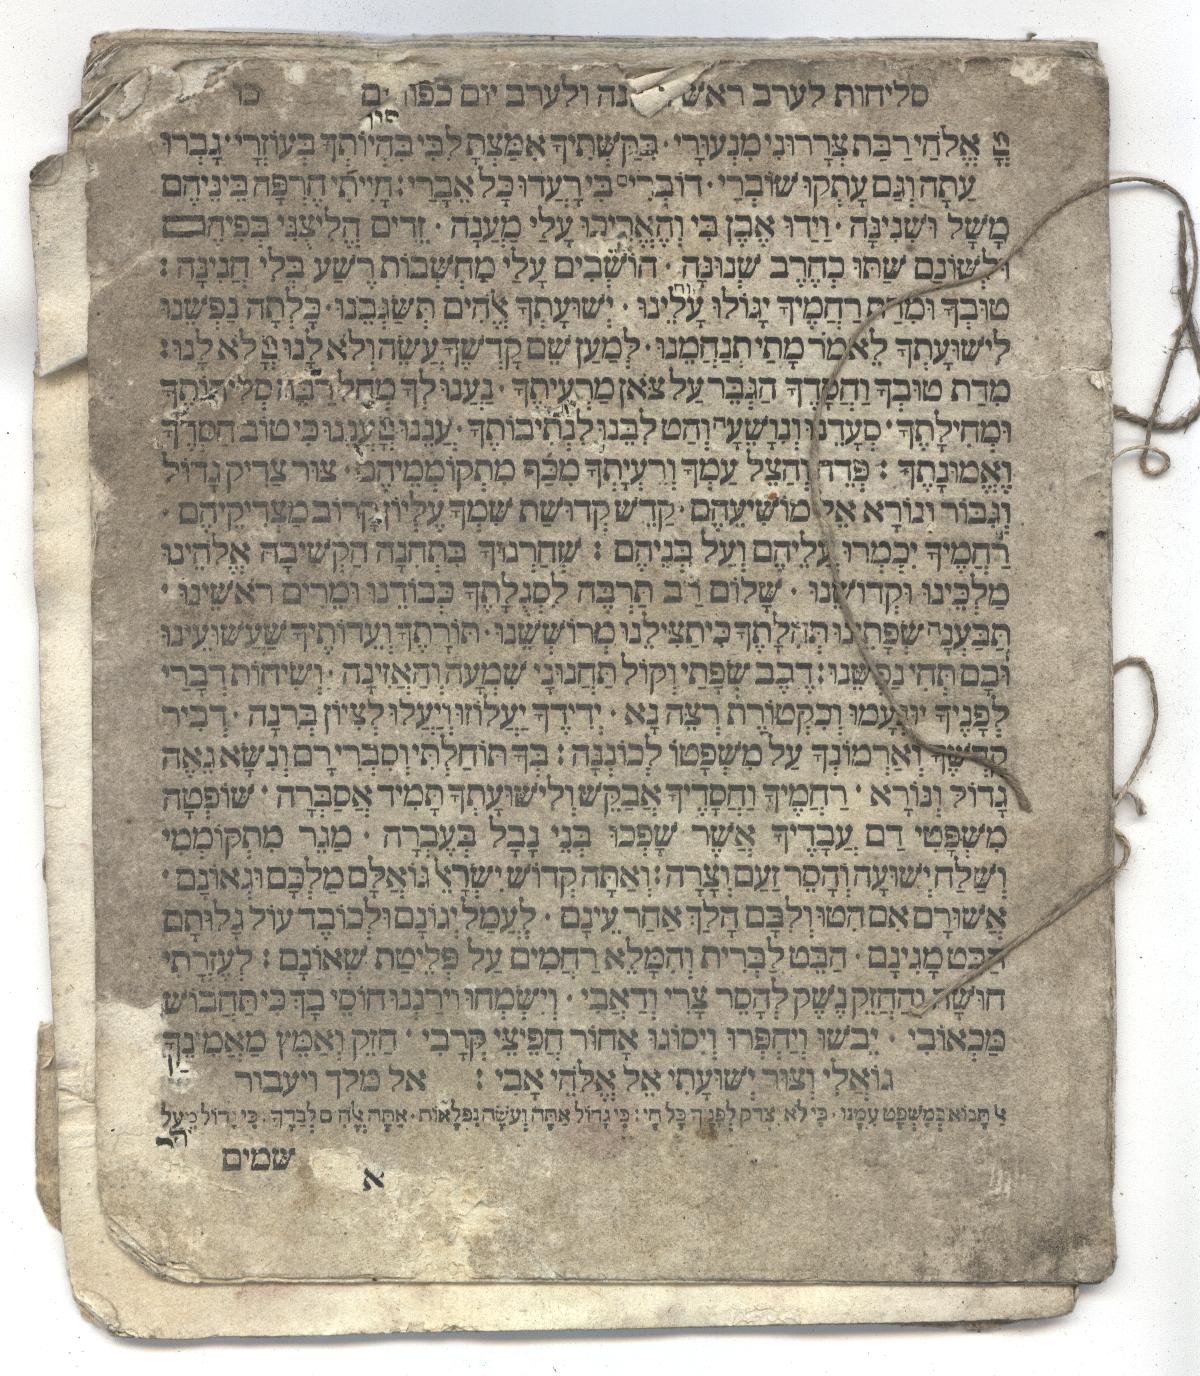 סליחות לערב ראש נה ולערב יום כפורים כו
אֱלֹהַי רַבַּת צְרָרוּנִי מִנְעוּרָי · בְּקַשְׁתִּיךָ אִמַּצְתָּ לִבִּי בִּהְיוֹתְךָ בְּעוֹזְרָי · גָּבְרוּ
עַתָּה וְגַם עָתְקוּ שׁוֹבְרַי · דוֹבְרִים בִּי רָעֲדוּ כָּל אֵבָרַי : הָיִיתִי חֶרְפָּה בֵּינֵיהֶם
מָשָׁל וּשְׁנִינָה · וַיַּדּוּ אֶבֶן בִּי וְהֶאֱרִיכוּ עָלַי מַעֲנָה · זֵדִים הֱלִיצֻנִי בְּפִיהֶם
וּלְשׁוֹנָם שַׁתּוּ כְּחֶרֶב שְׁנוּנָה · הוֹשְׁבִים עָלַי מַחְשְׁבוֹת רֶשַׁע בְּלִי חֲנִינָה :
טוּבְךָ וּמִדַּת רַחֲמֶיךָ יָגוֹלּוּ עָלֵינוּ · יְשׁוּעָתְךָ אֱהִים תְּשַׂגְּבֵנוּ · כָּלְתָה נַפְשֵׁנוּ
לִישׁוּעָתְךָ לֵאמֹר מָתַי תְּנַחֲמֵנוּ · לְמַעַן שֵׁם קָדְשְׁךָ עֲשֵׂה וְלֹא לָנוּ לֹא לָנוּ :
מִדַּת טוּבְךָ וְחַסְדְּךָ הַגְבֵּר עַל צֹאן מַרְעִיתֶךָ · נְעֵנוּ לְךָ מְחַל רַבֵּה סְלִיחוֹתֶךָ
וּמְחִילָתֶךָ · סְעָדֵנוּ וְנִוָּשֵׁעָה וְהַט לִבֵּנוּ לִנְתִיבוֹתֶךָ · עֲנֵנוּ עֲנֵנוּ כִּי טוֹב חַסְדְּךָ
וֶאֱמוּנָתֶךָ : פְּדֵה וְהַצֵּל עַמְּךָ וְרַעְיָתְךָ מִכַּף מִתְקוֹמְמֵיהֶם · צוּר צַדִּיק גָּדוֹל
וְגִבּוֹר וְנוֹרָא אֵל מוֹשִׁיעֵהֶם · קַדֵּשׁ קְדוּשַּׁת שִׁמְךָ עֶלְיוֹן קָרוֹב מַצְדִּיקֵיהֶם ·
רַחֲמֶיךָ יִכְמְרוּ עֲלֵיהֶם וְעַל בְּנֵיהֶם : שִׁחַרְנוּךָ בִּתְחִנָּה הַקְשִׁיבָה אֱלֹהֵינוּ
מַלְכֵּינוּ וּקְדוֹשֵׁנוּ · שָׁלוֹם רַב תַּרְבֶּה לִסְגֻלָּתֶךָ כְּבוֹדֵנוּ וּמֵרִים רֹאשֵׁינוּ ·
תַּבַּעְנָה שְׂפָתֵינוּ תְּהִלָּתֶךָ כִּי תַצִּילֵנוּ מְרוֹשְׁשֵׁנוּ · תּוֹרָתְךָ וְעֵדוֹתֶיךָ שַׁעֲשׁוּעֵינוּ
וּבָם תְּחִי נַפְשֵׁנוּ : דֶּבֶב שְׂפָתַי וְקוֹל תַּחֲנוּנַי שִׁמְעָה וְהַאֲזִינָה · וְשִׂיחוֹת דְּבָרַי
לְפָנֶיךָ יוּנְעֲמוּ וְכִקְטוֹרֶת רְצֵה נָא · יְדִידֶךָ יַעֲלוֹזוּ וְיַעֲלוּ לְצִיּוֹן בְּרִנָּה · דְּבִיר
קָדְשְׁךָ וְאַרְמוֹנְךָ עַל מִשְׁפָּטוֹ לְכוֹנְנָה : בְּךָ תּוֹחַלְתִּי וְסִבְרִי רָם וְנִשָּׂא גֵּאֶה
גָּדוֹל וְנוֹרָא · רַחֲמֶיךָ וַחֲסָדֶיךָ אֲבַקֵּשׁ וְלִישׁוּעָתְךָ תָמִיד אֲסַבְּרָה · שׁוֹפְטָה
מִשְׁפְּטֵי דַם עֲבָדֶיךָ אֲשֶׁר שָׁפְכוּ בְּנֵי נָבָל בְּעֶבְרָה · מַגֵּר מִתְקוֹמְמַי
וּשְׁלַח יְשׁוּעָה וְהָסֵר זַעַם וְצָרָה : וְאַתָּה קְדוֹשׁ יִשְׂרָאֵל גּוֹאֲלָם מַלְכָּם וּגְאוֹנָם ·
אֲשׁוּרָם אִם הִטּוּ וְלִבָּם הָלַךְ אַחַר עֵינָם · לַעֲמַל יְגוֹנָם וּלְכוֹבֶד עוֹל גָּלוּתָם
הַבֵּט מָגִינָם · הַבֵּט לַבְּרִית וְהִמָּלֵא רַחֲמִים עַל פְּלֵיטַת שְׁאוֹנָם : לְעֶזְרָתִי
חוּשָׁה וְהַחֲזֵק נֶשֶׁק לְהָסֵר צָרַי וְדַאֲבִי · וְיִשְׂמְחוּ וִירַנְּנוּ חוֹסֵי בָךְ כִּי תַחֲבוֹשׁ
מַכְאוֹבִי · יֵבֹשׁוּ וְיַחְפְּרוּ וְיִסּוֹגוּ אָחוֹר חֲפִיצֵי קְרָבִי · חַזֵּק וְאַמֵּץ מַאֲמִינֶךָ
גּוֹאֲלִי וְצוּר יְשׁוּעָתִי אֵל אֱלֹהֵי אָבִי : אל מלך ויעבור
תָּבוֹא בְמִשְׁפָּט עִמָּנוּ · כִּי לֹא צִדֵּק לְפָנֶיךָ כָּל חָי : כִּי גָדוֹל אַתָּה וְעֹשֵׂה נִפְלָאוֹת · אַתָּה אֱלֹהִים לְבַדֶּךָ · כִּי גָדוֹל מֵעַל
שמים
א